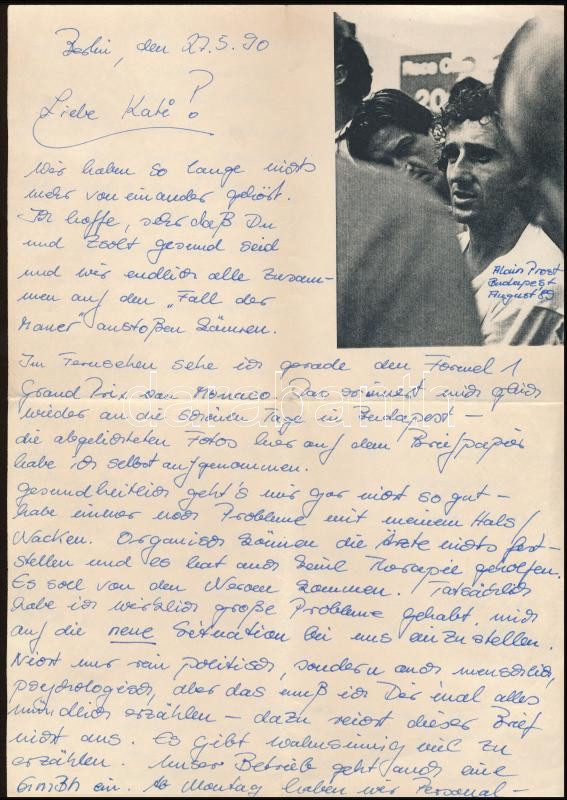 Berlin, den 27.5.90
Liebe Kati!
Wir haben so lange nichts
mehr voneinander gehört.
Ich hoffe, sehr daß Du
und Zsolt gesund seid
und wir endlich alle zusam-
men auf den „Fall der
Mauer" anstoßen können.
Race
20
Alain Prost
Budapest
August '89
Im Fernsehen sehe ich gerade den Formel 1
Grand Prix von Monaco. Das erinnert mich gleich
wieder an die schönen Tage in Budapest –
die abgelichteten Fotos hier auf dem Briefpapier
habe ich selbst aufgenommen.
darabanth
Gesundheitlich geht's mir gar nicht so gut –
habe immer noch Probleme mit meinem Hals/
Nacken. Organisch können die Ärzte nichts fest-
stellen und es hat auch keine Therapie geholfen.
Es soll von den Nerven kommen. Tatsächlich
habe ich wirklich große Probleme gehabt, mich
auf die neue Situation bei uns einzustellen.
Nicht nur rein politisch, sondern auch menschlich,
psychologisch, aber das muß ich Dir mal alles
mündlich erzählen – dazu reicht dieser Brief
nicht aus. Es gibt wahnsinnig viel zu
erzählen. Unser Betrieb geht auch eine
GmbH ein. Ab Montag haben wir Personal-